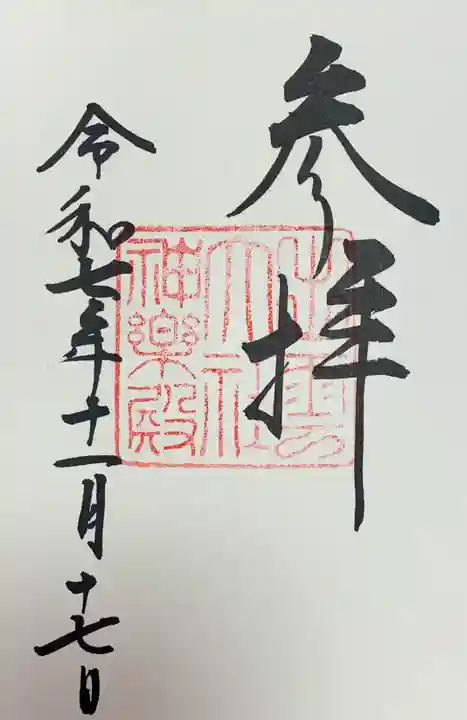 参拝
出雲
大社
神楽殿
令和七年十一月十七日